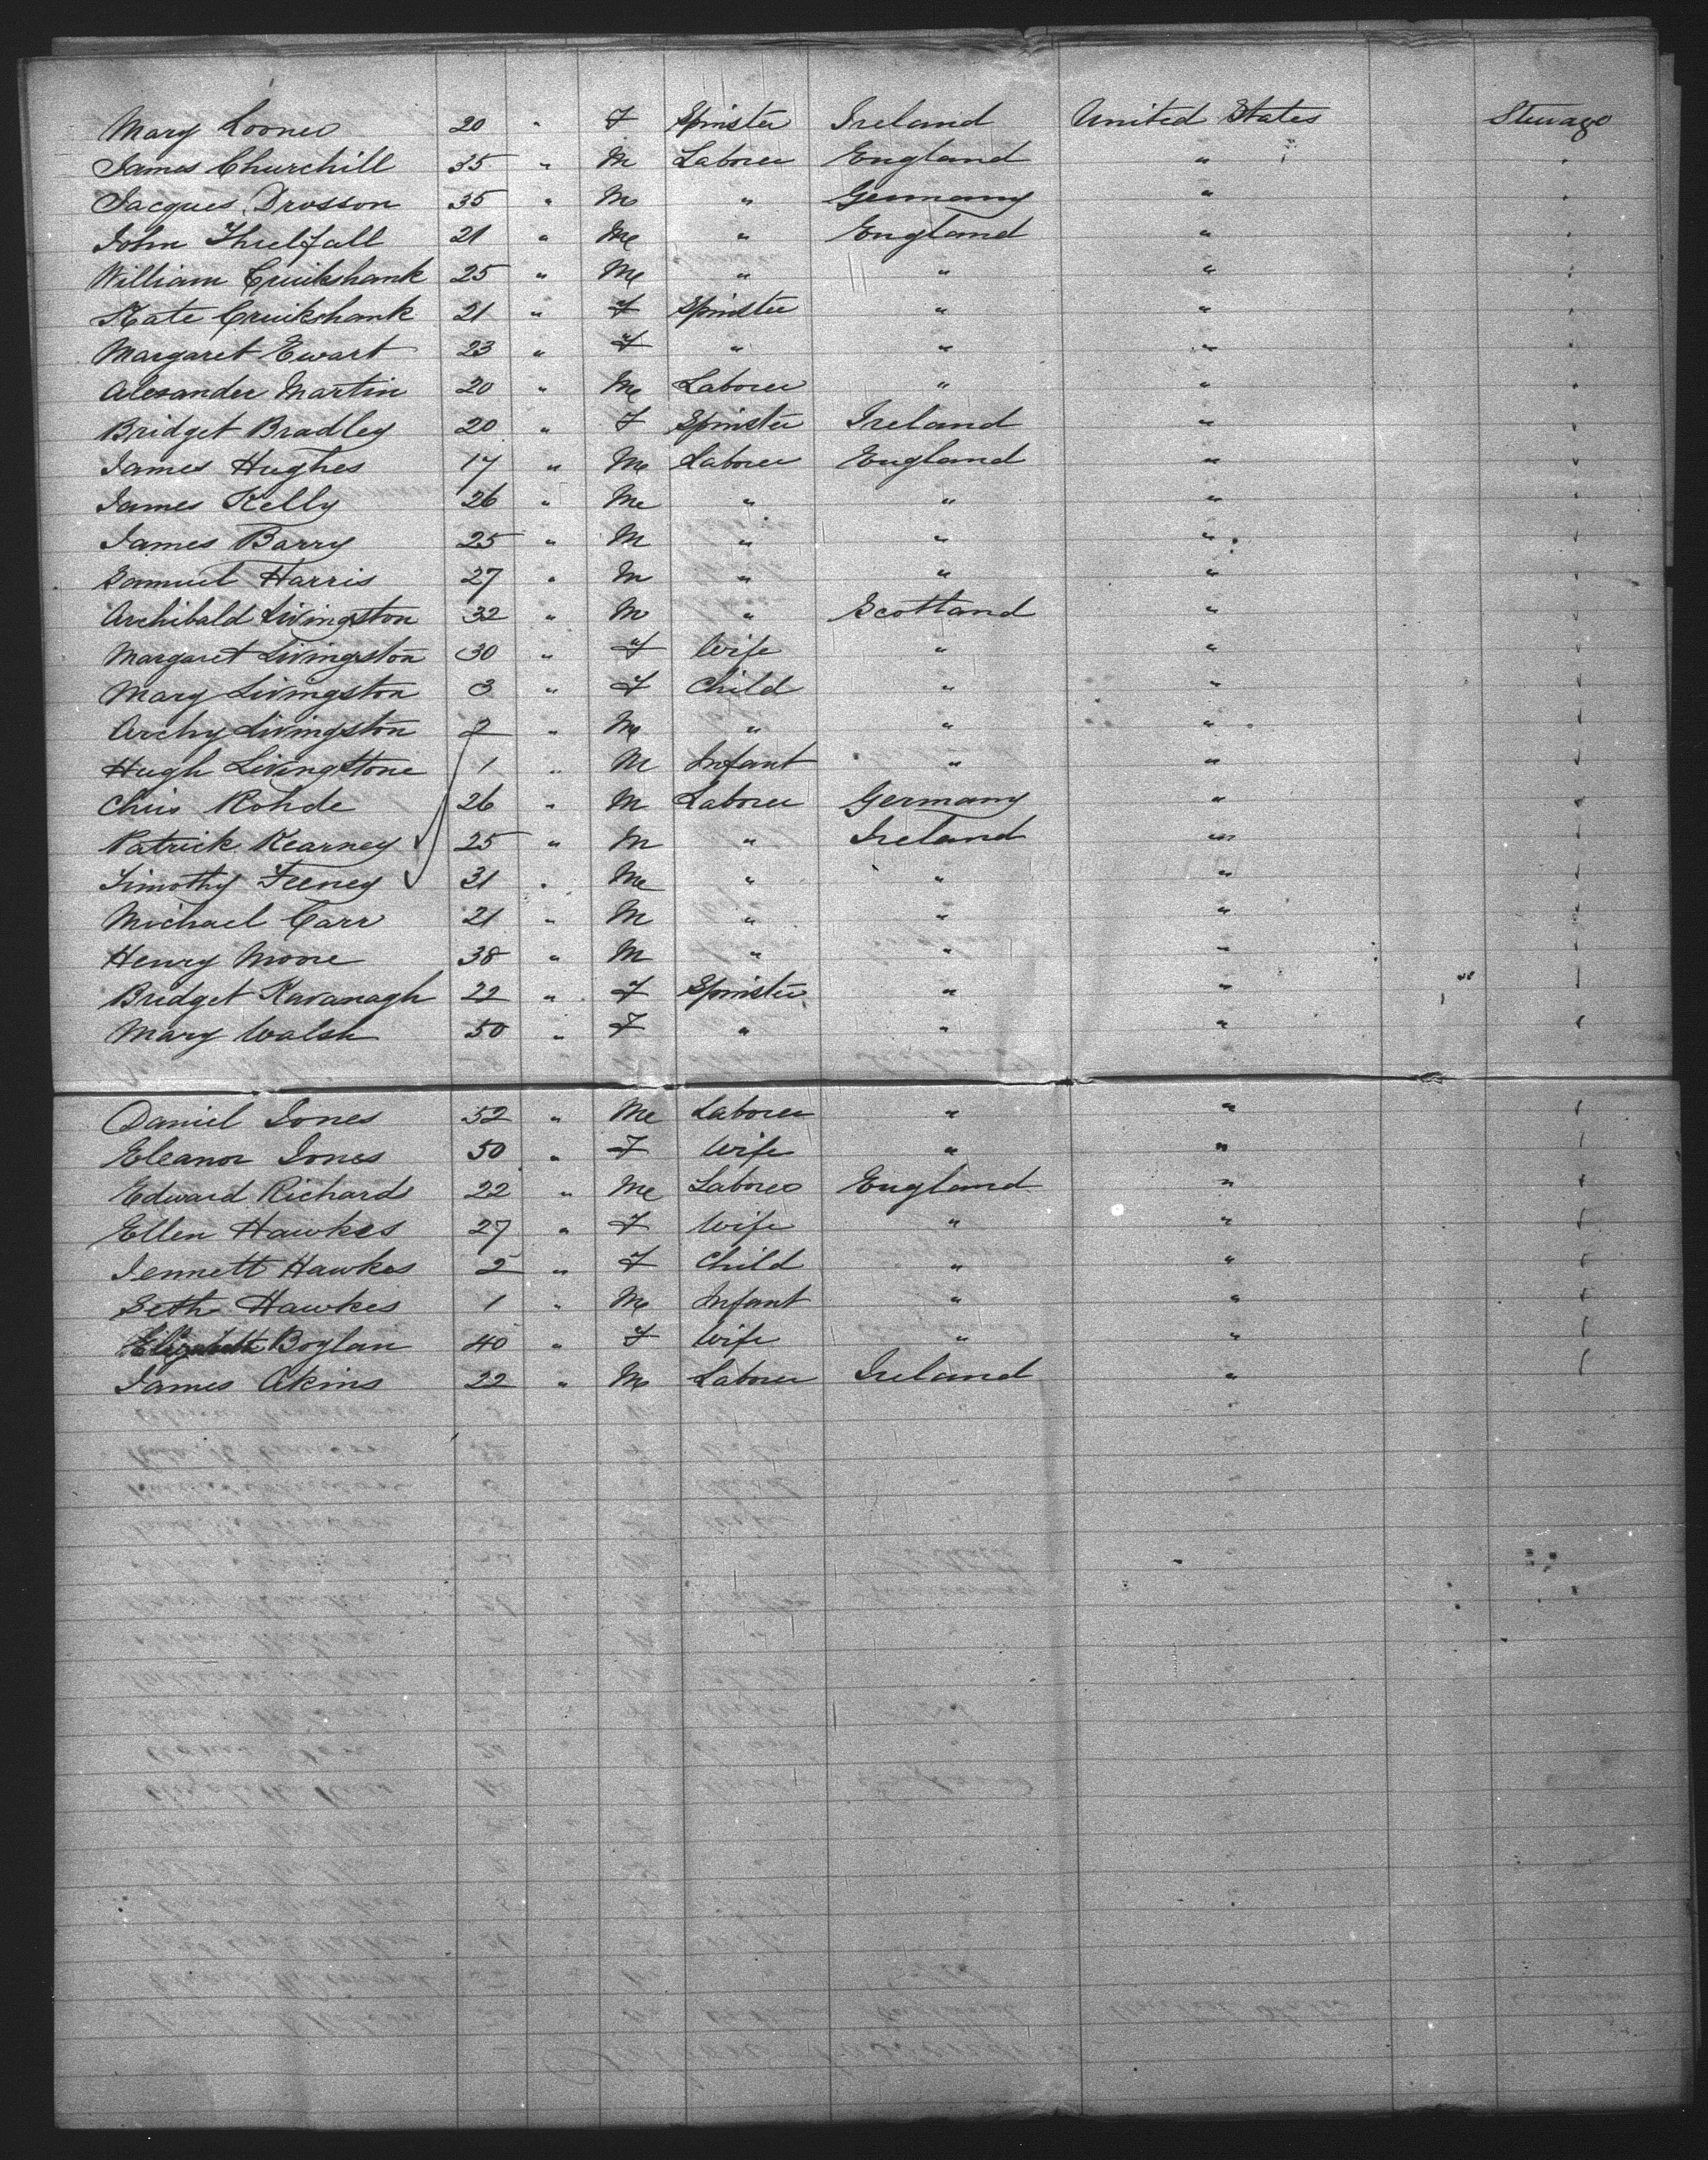 Mary Loones 20 " F Spinster Ireland United States Steerage
James Churchill 35 " M Laborer England " "
Jacques Drosson 35 " M " Germany " "
John Threlfall 21 " M " England " "
William Cruikshank 25 " M " " " "
Kate Cruikshank 21 " F Spinster " " "
Margaret Ewart 23 " F " " " "
Alexander Martin 20 " M Laborer " " "
Bridget Bradley 20 " F Spinster Ireland " "
James Hughes 17 " M Laborer England " "
James Kelly 26 " M " " " "
James Barry 25 " M " " " "
Samuel Harris 27 " M " " " "
Archibald Livingston 32 " M " Scotland " "
Margaret Livingston 30 " F Wife " " "
Mary Livingston 3 " F Child " " "
Archy Livingston 2 " M " " " "
Hugh Livingstone 1 " M Infant " " "
Chris Rohde 26 " M Laborer Germany " "
Patrick Kearney 25 " M " Ireland " "
Timothy Feeney 31 " M " " " "
Michael Carr 21 " M " " " "
Henry Moore 38 " M " " " "
Bridget Kavanagh 22 " F Spinster " " "
Mary Walsh 50 " F " " " "
Daniel Jones 52 " M Laborer " " "
Eleanor Jones 50 " F Wife " " "
Edward Richards 22 " M Laborer England " "
Ellen Hawkes 27 " F Wife " " "
Jennett Hawkes 2 " F Child " " "
Seth Hawkes 1 " M Infant " " "
Elizabeth Boylan 40 " F Wife " " "
James Akins 22 " M Laborer Ireland " "